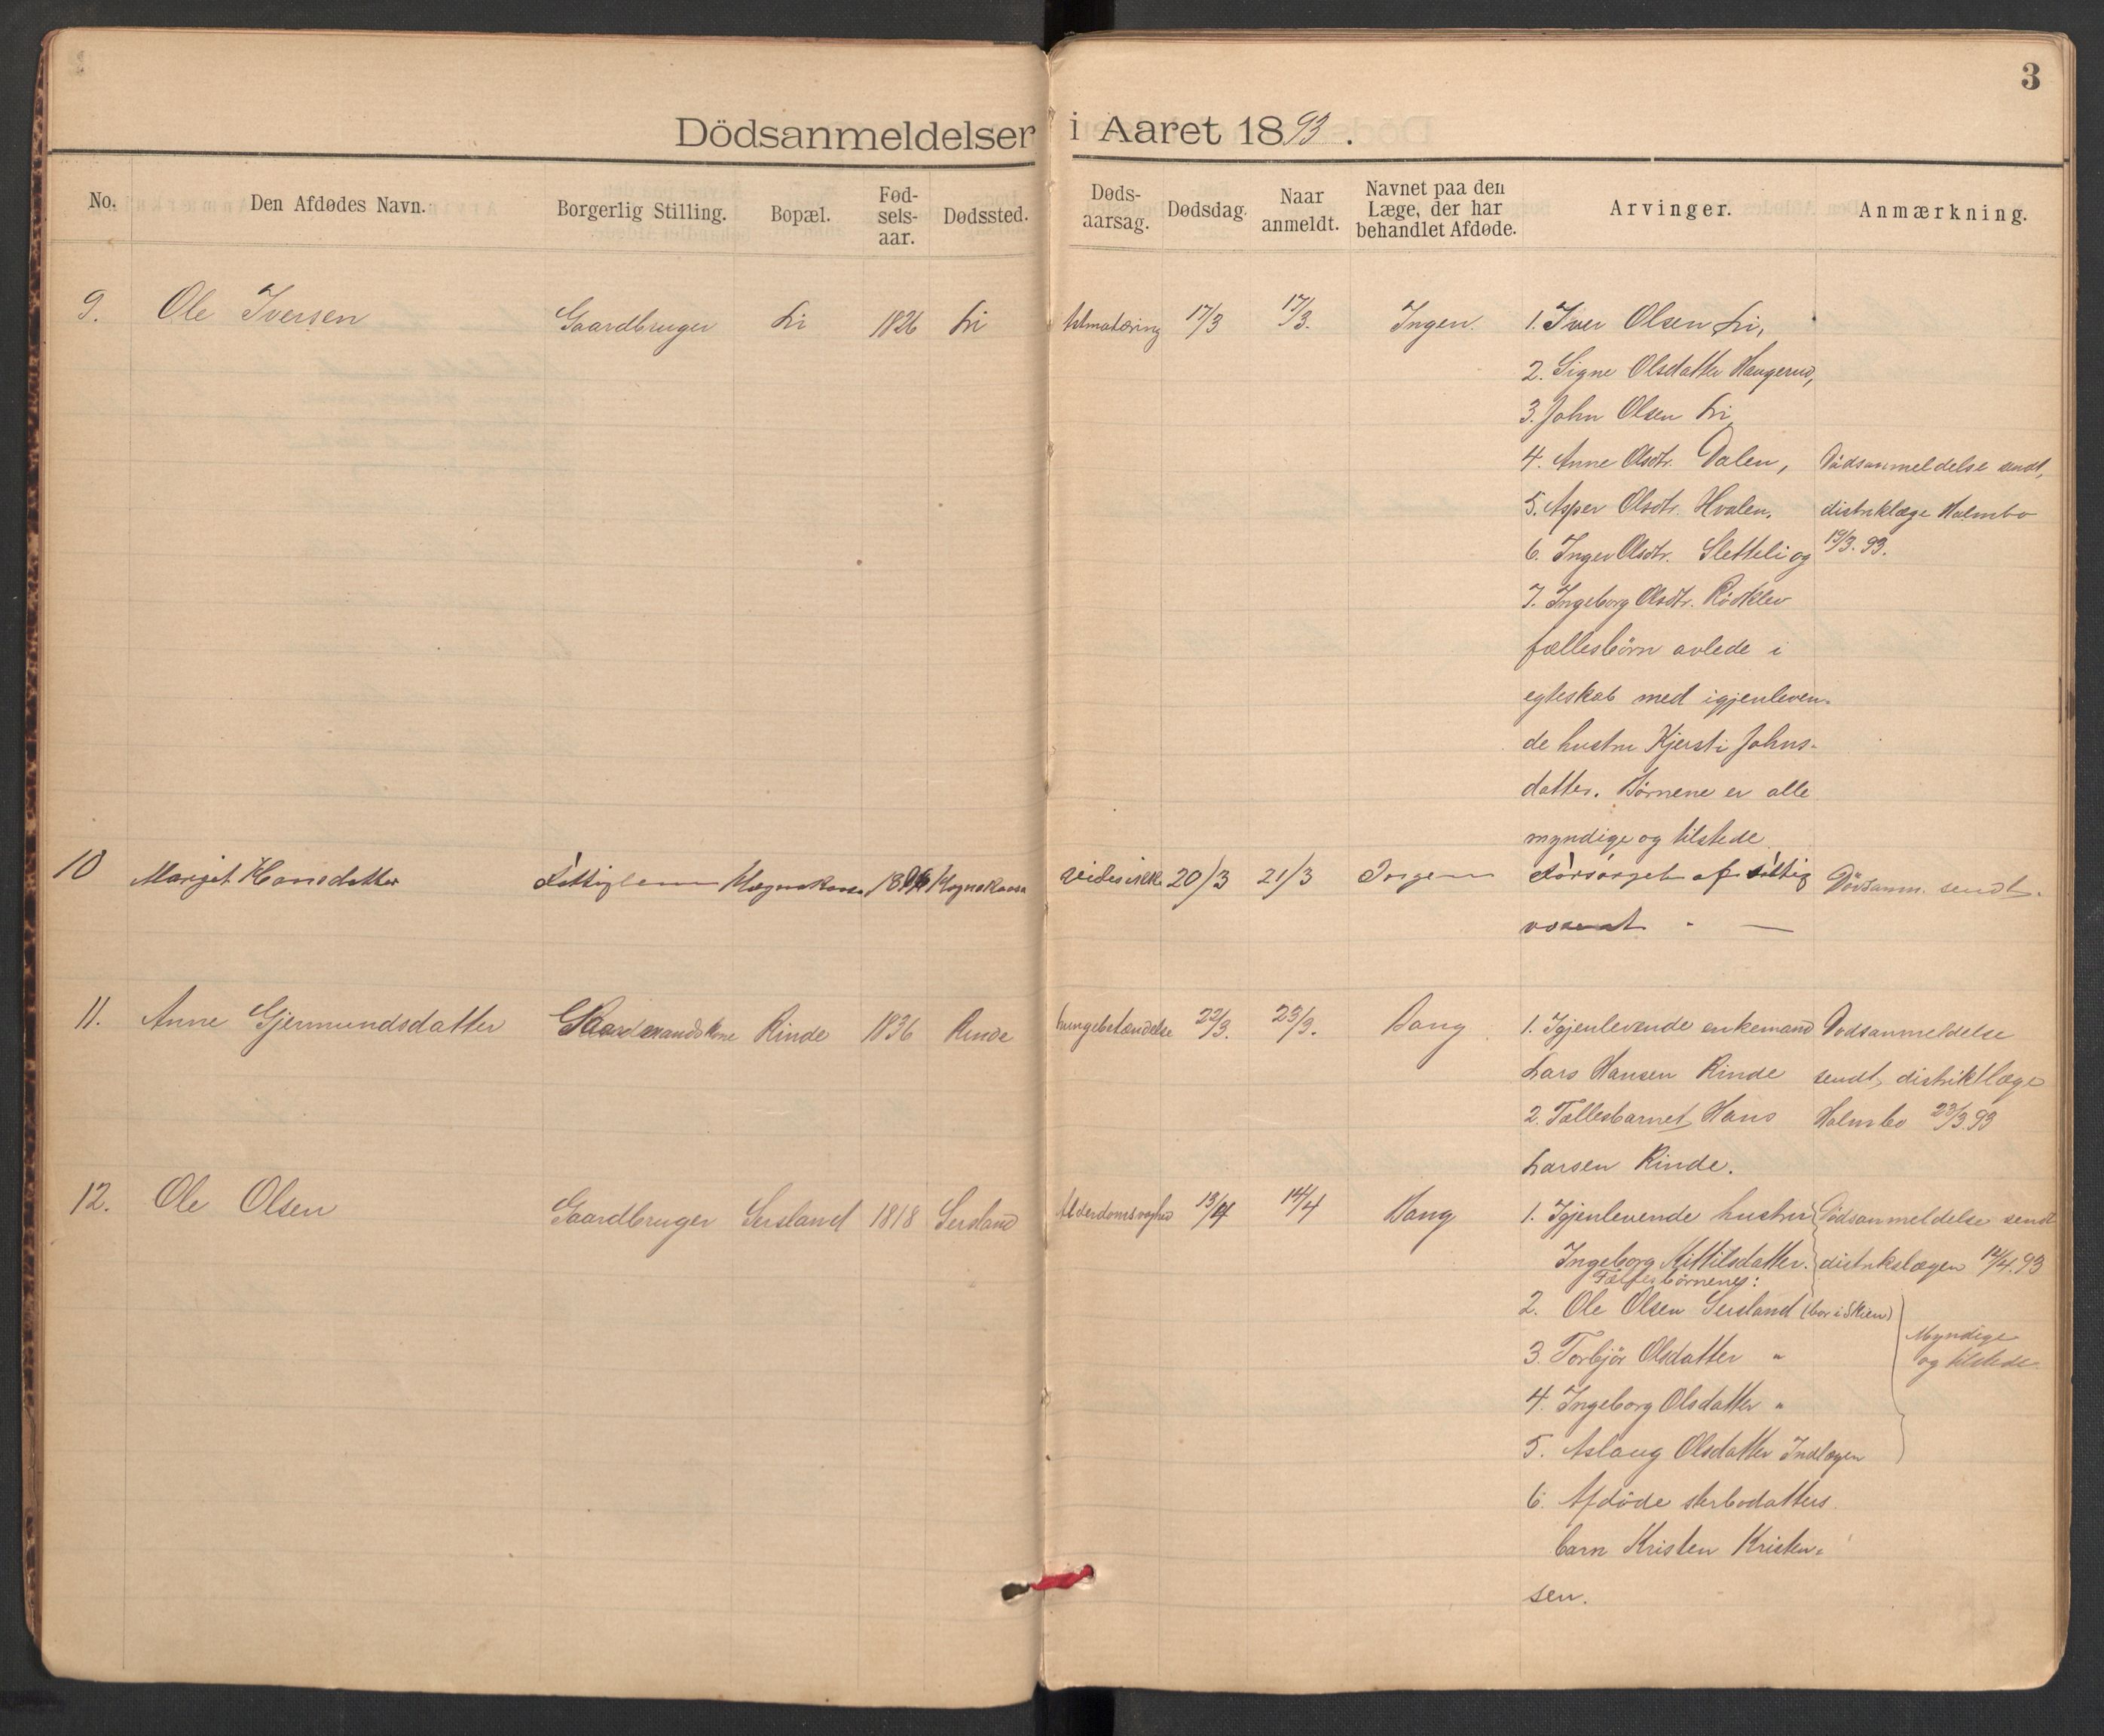 3
Dödsanmeldelser i Aaret 1893.
No. Den Afdødes Navn. Borgerlig Stilling. Bopæl. Fødselsaar. Dødssted. Dødsaarsag. Dødsdag. Naar anmeldt. Navnet paa den Læge, der har behandlet Afdøde. Arvinger. Anmærkning.
9. Ole Iversen Gaardbruger Li 1826 Li 17/3 17/3. Ingen. 1. Iver Olsen Li,
2. Signe Olsdatter Haugerud,
3. John Olsen Li
4. Anne Olsdtr. Dalen, Dödsanmeldelse sendt,
5. Asper Olsdtr. Hvalen, distriklæge Holmbo
6. Inger Olsdtr. Sletteli og /3. 93.
7. Ingeborg Olsdtr. Rödklev
fællesbörn avlede i
egteskab med igjenleven-
de hustru Kjersti Johns-
datter. Börnene er alle
myndige og tilstede
10 Margit Hansdatter 20/3 21/3 Ingen Forsörget af fattig Dödsanm. sendt.
11. Anne Gjermundsdatter Gaardmandskone Rinde 1836 Rinde lungebetændelse 22/3. 23/3. Bang 1. Igjenlevende enkemand Dödsanmeldelse
Lars Hansen Rinde sendt, distriktlæge
2. Fællesbarnet Hans Holmbo 23/3.93
Larsen Rinde.
12. Ole Olsen Gaardbruger Sersland 1818 Sersland Alderdomsvaghed 13/4 14/4 Bang 1. Igjenlevende hustru Dödsanmeldelse sendt
Ingeborg Kittilsdatter. distrikslægen 14/4.93
Fællesbörnene:
2. Ole Olsen Sersland (bor i Skien)
Myndige
3. Torbjör Olsdatter " og tilstede
4. Ingeborg Olsdatter "
5. Aslaug Olsdatter Indlægen
6. Afdöde sterbodatters
barn Kristen Kristen-
sen.